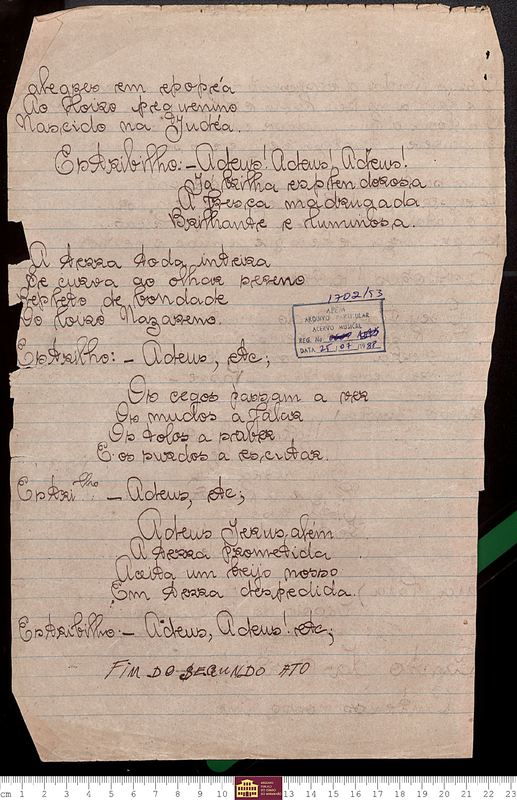 abeases em epopéa
Ao Loiro pequenino
Nascido na Judéa.
Estribilho: - Adeus! Adeus! Adeus!
Já brilha esplendorosa
A fresca madrugada
Brilhante e luminosa.
A terra toda inteira
Se curva ao olhar sereno
Repleto de bondade
Do louro Nazareno.
1702/53
APEM
ARQUIVO PARTICULAR
ACERVO MUSICAL
REG. No.
DATA 25/07/1988
Estribilho: - Adeus, etc;
Os cegos passam a ver
Os mudos a falar
Os tolos a saber
E os surdos a escutar.
Estribilho - Adeus, etc;
Adeus Jerusalém
A terra prometida
Aceita um beijo nosso
Em terra despedida.
Estribilho - Adeus, Adeus! etc;
FIM DO SEGUNDO ATO
cm 1 2 3 4 5 6 7 8 9 10 13 14 15 16 17 18 19 20 21 22 23